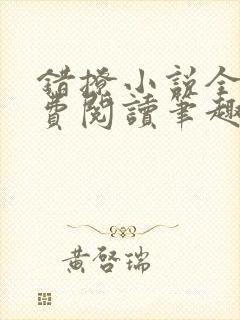 錯撩小說全
費閱讀筆趣
黃啓瑞